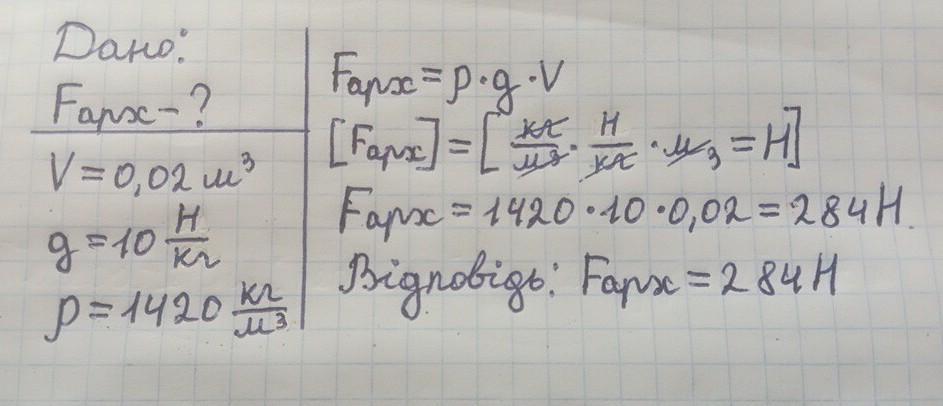 Дано:
Fарх - ?
V = 0,02 м³
g = 10 Н/кг
ρ = 1420 кг/м³
Fарх = ρ · g · V
[Fарх] = [кг/м³ · Н/кг · м³ = Н]
Fарх = 1420 · 10 · 0,02 = 284 Н.
Відповідь: Fарх = 284 Н